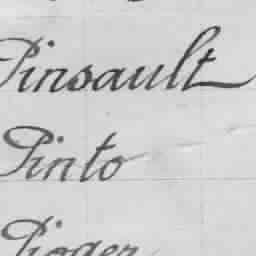 Pinsault
Pinto
Pioger